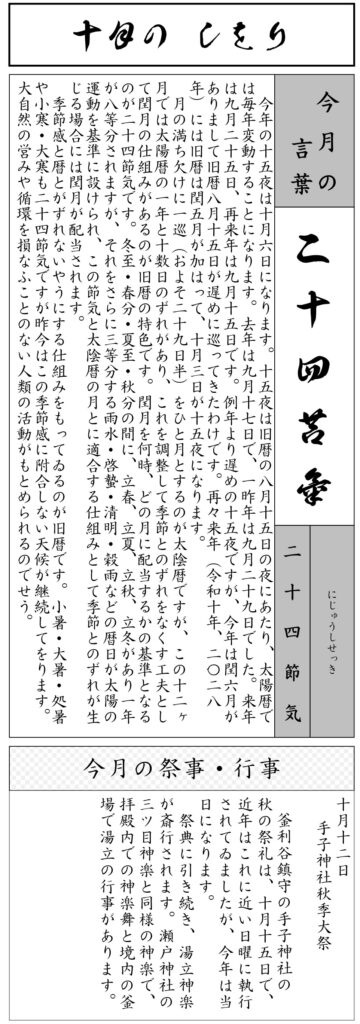 十月の しをり
今月の
言葉
二十四苦氣
にじゅうしせっき
二十四節気
今年の十五夜は十月六日になります。十五夜は旧暦の八月十五日の夜にあたり、太陽暦で
は毎年変動することになります。去年は九月十七日で、一昨年は九月二十九日でした。来年
は九月二十五日、再来年は九月十五日です。例年より遅めの十五夜ですが、今年は閏六月が
ありまして旧暦八月十五日が遅めに巡ってきたわけです。再々来年（令和十年、二〇二八
年）には旧暦は閏五月が加はって、十月三日が十五夜になります。
月の満ち欠けに一巡（およそ二十九日半）をひと月とするのが太陰暦ですが、この十二ヶ
月では太陽暦の一年と十数日のずれがあり、これを調整して季節とのずれをなくす工夫とし
て閏月の仕組みがあるのが旧暦の特色です。閏月を何時、どの月に配当するかの基準となる
のが二十四節気です。冬至・春分・夏至・秋分の間に、立春、立夏、立秋、立冬があり一年
が八等分されますが、それをさらに三等分する雨水・啓蟄・清明・穀雨などの暦日が太陽の
運動を基準に設けられ、この節気と太陰暦の月とに適合する仕組みとして季節とのずれが生
じる場合には閏月が配当されます。
季節感と暦とがずれないやうにする仕組みをもってゐるのが旧暦です。小暑・大暑・処暑
や小寒・大寒も二十四節気ですが昨今はこの季節感に附合しない天候が継続してをります。
大自然の営みや循環を損なふことのない人類の活動がもとめられるのでせう。
今月の祭事・行事
十月十二日
手子神社秋季大祭
釜利谷鎮守の手子神社の
秋の祭礼は、十月十五日で、
近年はこれに近い日曜に執行
されてゐましたが、今年は当
日になります。
祭典に引き続き、湯立神楽
が斎行されます。瀬戸神社の
三ツ目神楽と同様の神楽で、
拝殿内での神楽舞と境内の釜
場で湯立の行事があります。